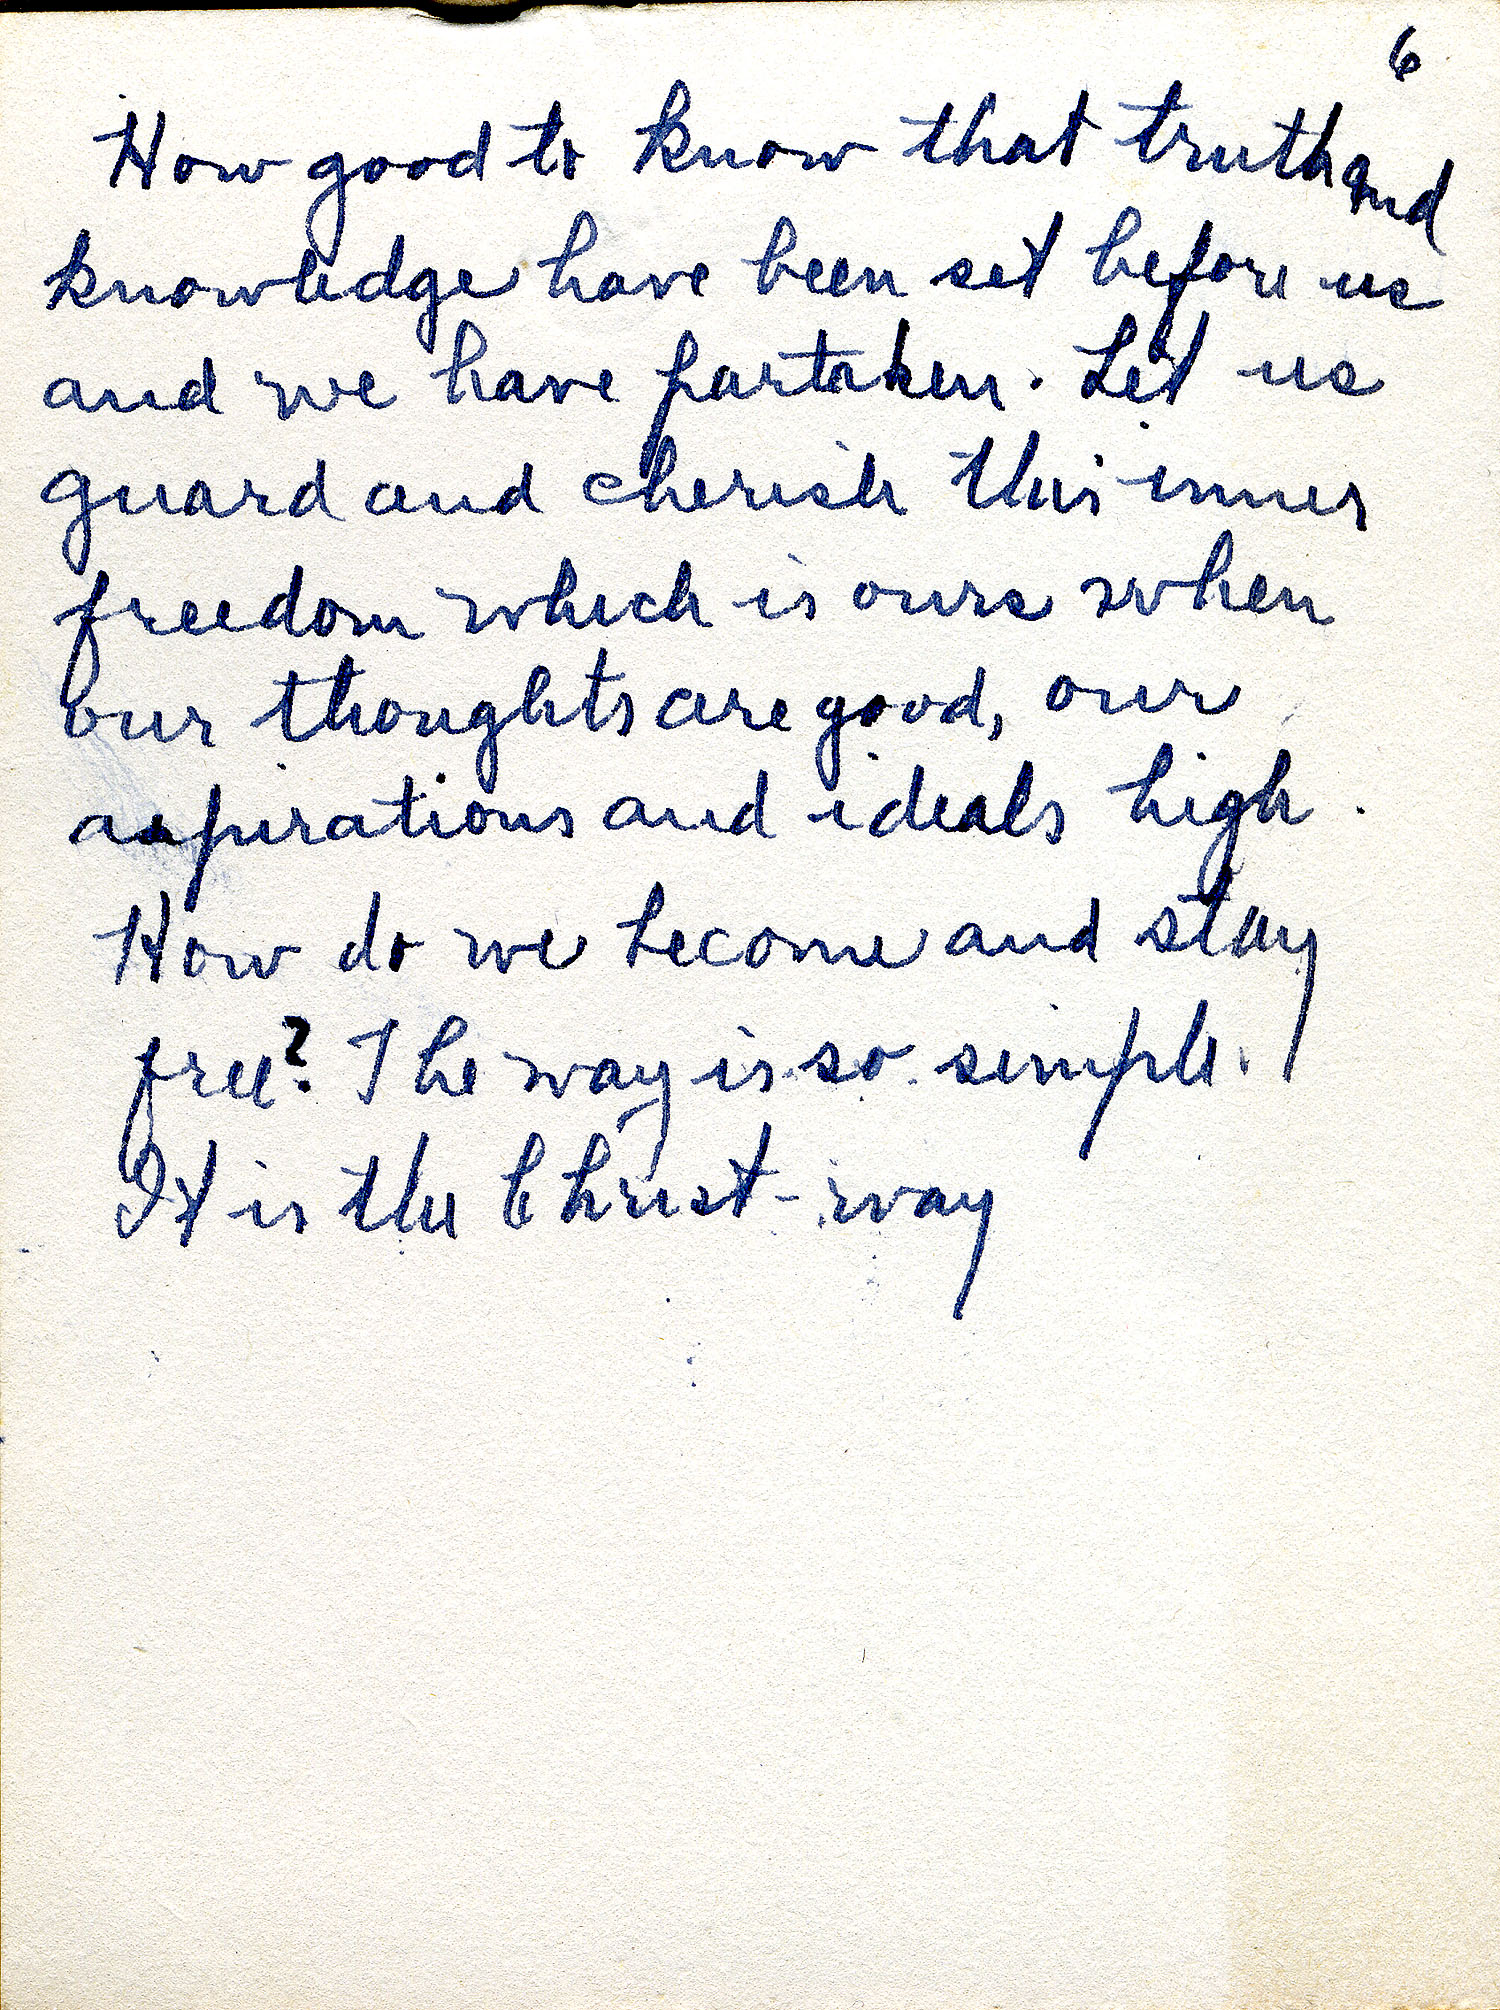 6
How good to know that truth and
knowledge have been set before us
and we have partaken. Let us
guard and cherish this inner
freedom which is ours when
our thoughts are good, our
aspirations and ideals high.
How do we become and stay
free? The way is so simple.
It is the Christ-way